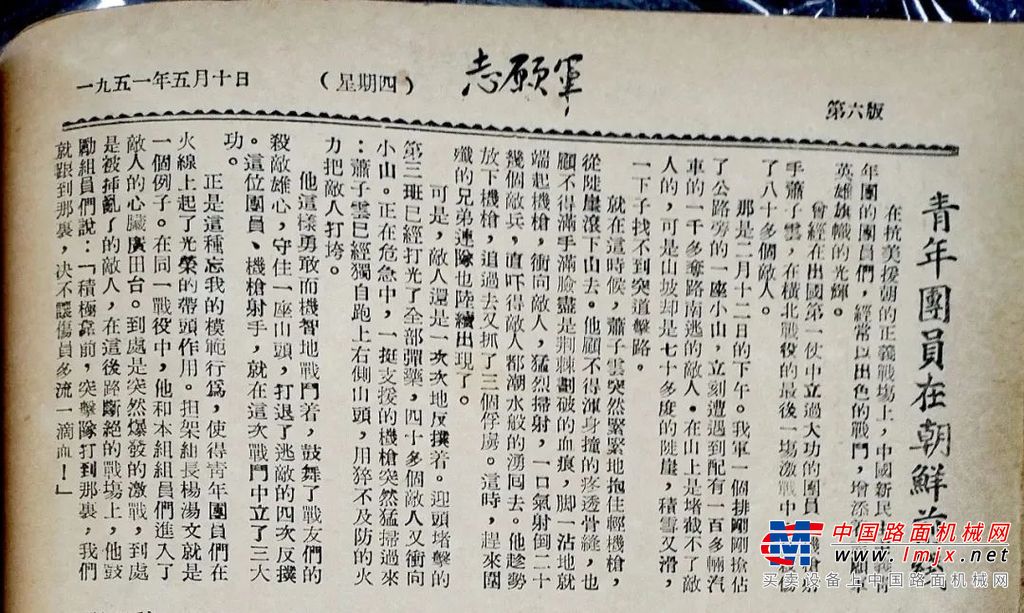 一九五一年五月十日
（星期四）
志願軍
第六版
青年團員在朝鮮前綫
在抗美援朝的正義戰場上，中國新民主主義青
年團的團員們，經常以出色的戰鬥，增添
英雄旗幟的光輝。
曾經在出國第一仗中立過大功的團員、機槍射
手蕭子雲，在橫北戰役的最後一場激戰中，殺傷
了八十多個敵人。
那是二月十二日的下午。我軍一個排剛剛搶佔
了公路旁的一座小山，立刻遭遇到配有一百多輛汽
車的一千多奪路南逃的敵人。在山上是堵截不了敵
人的，可是山坡却是七十多度的陡崖，積雪又滑，
一下子找不到突道擊路。
就在這時候，蕭子雲突然緊緊地抱住輕機槍，
從陡崖滾下山去。他顧不得渾身撞的疼透骨縫，也
顧不得滿手滿臉盡是荆棘劃破的血痕，脚一沾地就
端起機槍，衝向敵人，猛烈掃射，一口氣射倒二十
幾個敵兵，直吓得敵人都潮水般的湧囘去。他趁勢
放下機槍，追過去又抓了三個俘虜。這時，趕來圍
殲的兄弟連隊也陸續出現了。
可是，敵人還是一次次地反撲着。迎頭堵擊的
第三班已經打光了全部彈藥，四十多個敵人又衝向
小山。正在危急中，一挺支援的機槍突然猛掃過來
：蕭子雲已經獨自跑上右側山頭，用猝不及防的火
力把敵人打垮。
他這樣勇敢而機智地戰鬥着，鼓舞了戰友們的
殺敵雄心，守住一座山頭，打退了逃敵的四次反撲
。這位團員、機槍射手，就在這次戰鬥中立了三大
功。
正是這種忘我的模範行爲，使得青年團員們在
火線上起了光榮的帶頭作用。担架組長楊湯文就是
一個例子。在同一戰役中，他和本組組員們進入了
敵人的心臟廣田台。到處是突然爆發的激戰，到處
是被揷亂了的敵人，在這後路斷絕的戰場上，他鼓
勵組員們說：「積極靠前，突擊隊打到那裏，我們
就跟到那裏，決不讓傷員多流一滴血！」
中国路面机械网
www.lmjx.net
买卖设备上中国路面机械网